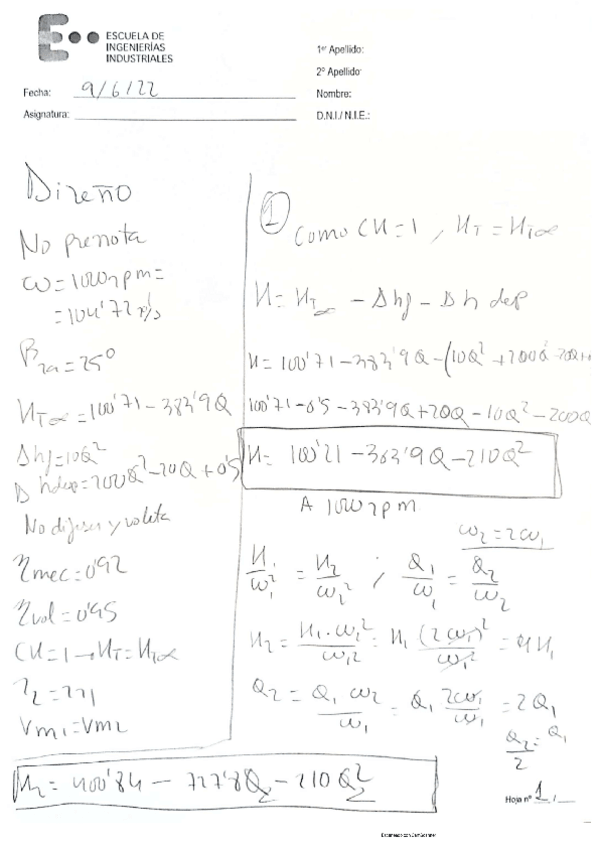 ESCUELA DE
INGENIERÍAS
INDUSTRIALES
1er Apellido:
2º Apellido:
Fecha: 9/6/22
Nombre:
Asignatura:
D.N.I./ N.I.E.:
Diseño
No prerrota
ω = 1000 rpm =
= 104'72 r/s
β2a = 25º
HT∞ = 100'71 - 383'9Q
Δhf = 10Q²
Δhdep = 200Q² - 20Q + 0'5
No difusor y voluta
ηmec = 0'92
ηvol = 0'95
CH = 1 → HT = HT∞
r2 = 2r1
Vm1 = Vm2
①
Como CH = 1, HT = HT∞
H = HT∞ - Δhf - Δh dep
H = 100'71 - 383'9Q - (10Q² + 200Q² - 20Q +
100'71 - 0'5 - 383'9Q + 20Q - 10Q² - 200Q
H = 100'21 - 363'9Q - 210Q²
A 1000 rpm
ω2 = 2ω1
H1/ω1² = H2/ω2² ; Q1/ω1 = Q2/ω2
H2 = H1·ω2²/ω1² = H1 (2ω1)²/ω1² = 4H1
Q2 = Q1 ω2/ω1 = Q1 2ω1/ω1 = 2Q1
Q2/2 = Q1
H2 = 400'84 - 727'8Q2 - 210Q2²
Hoja nº 1 /